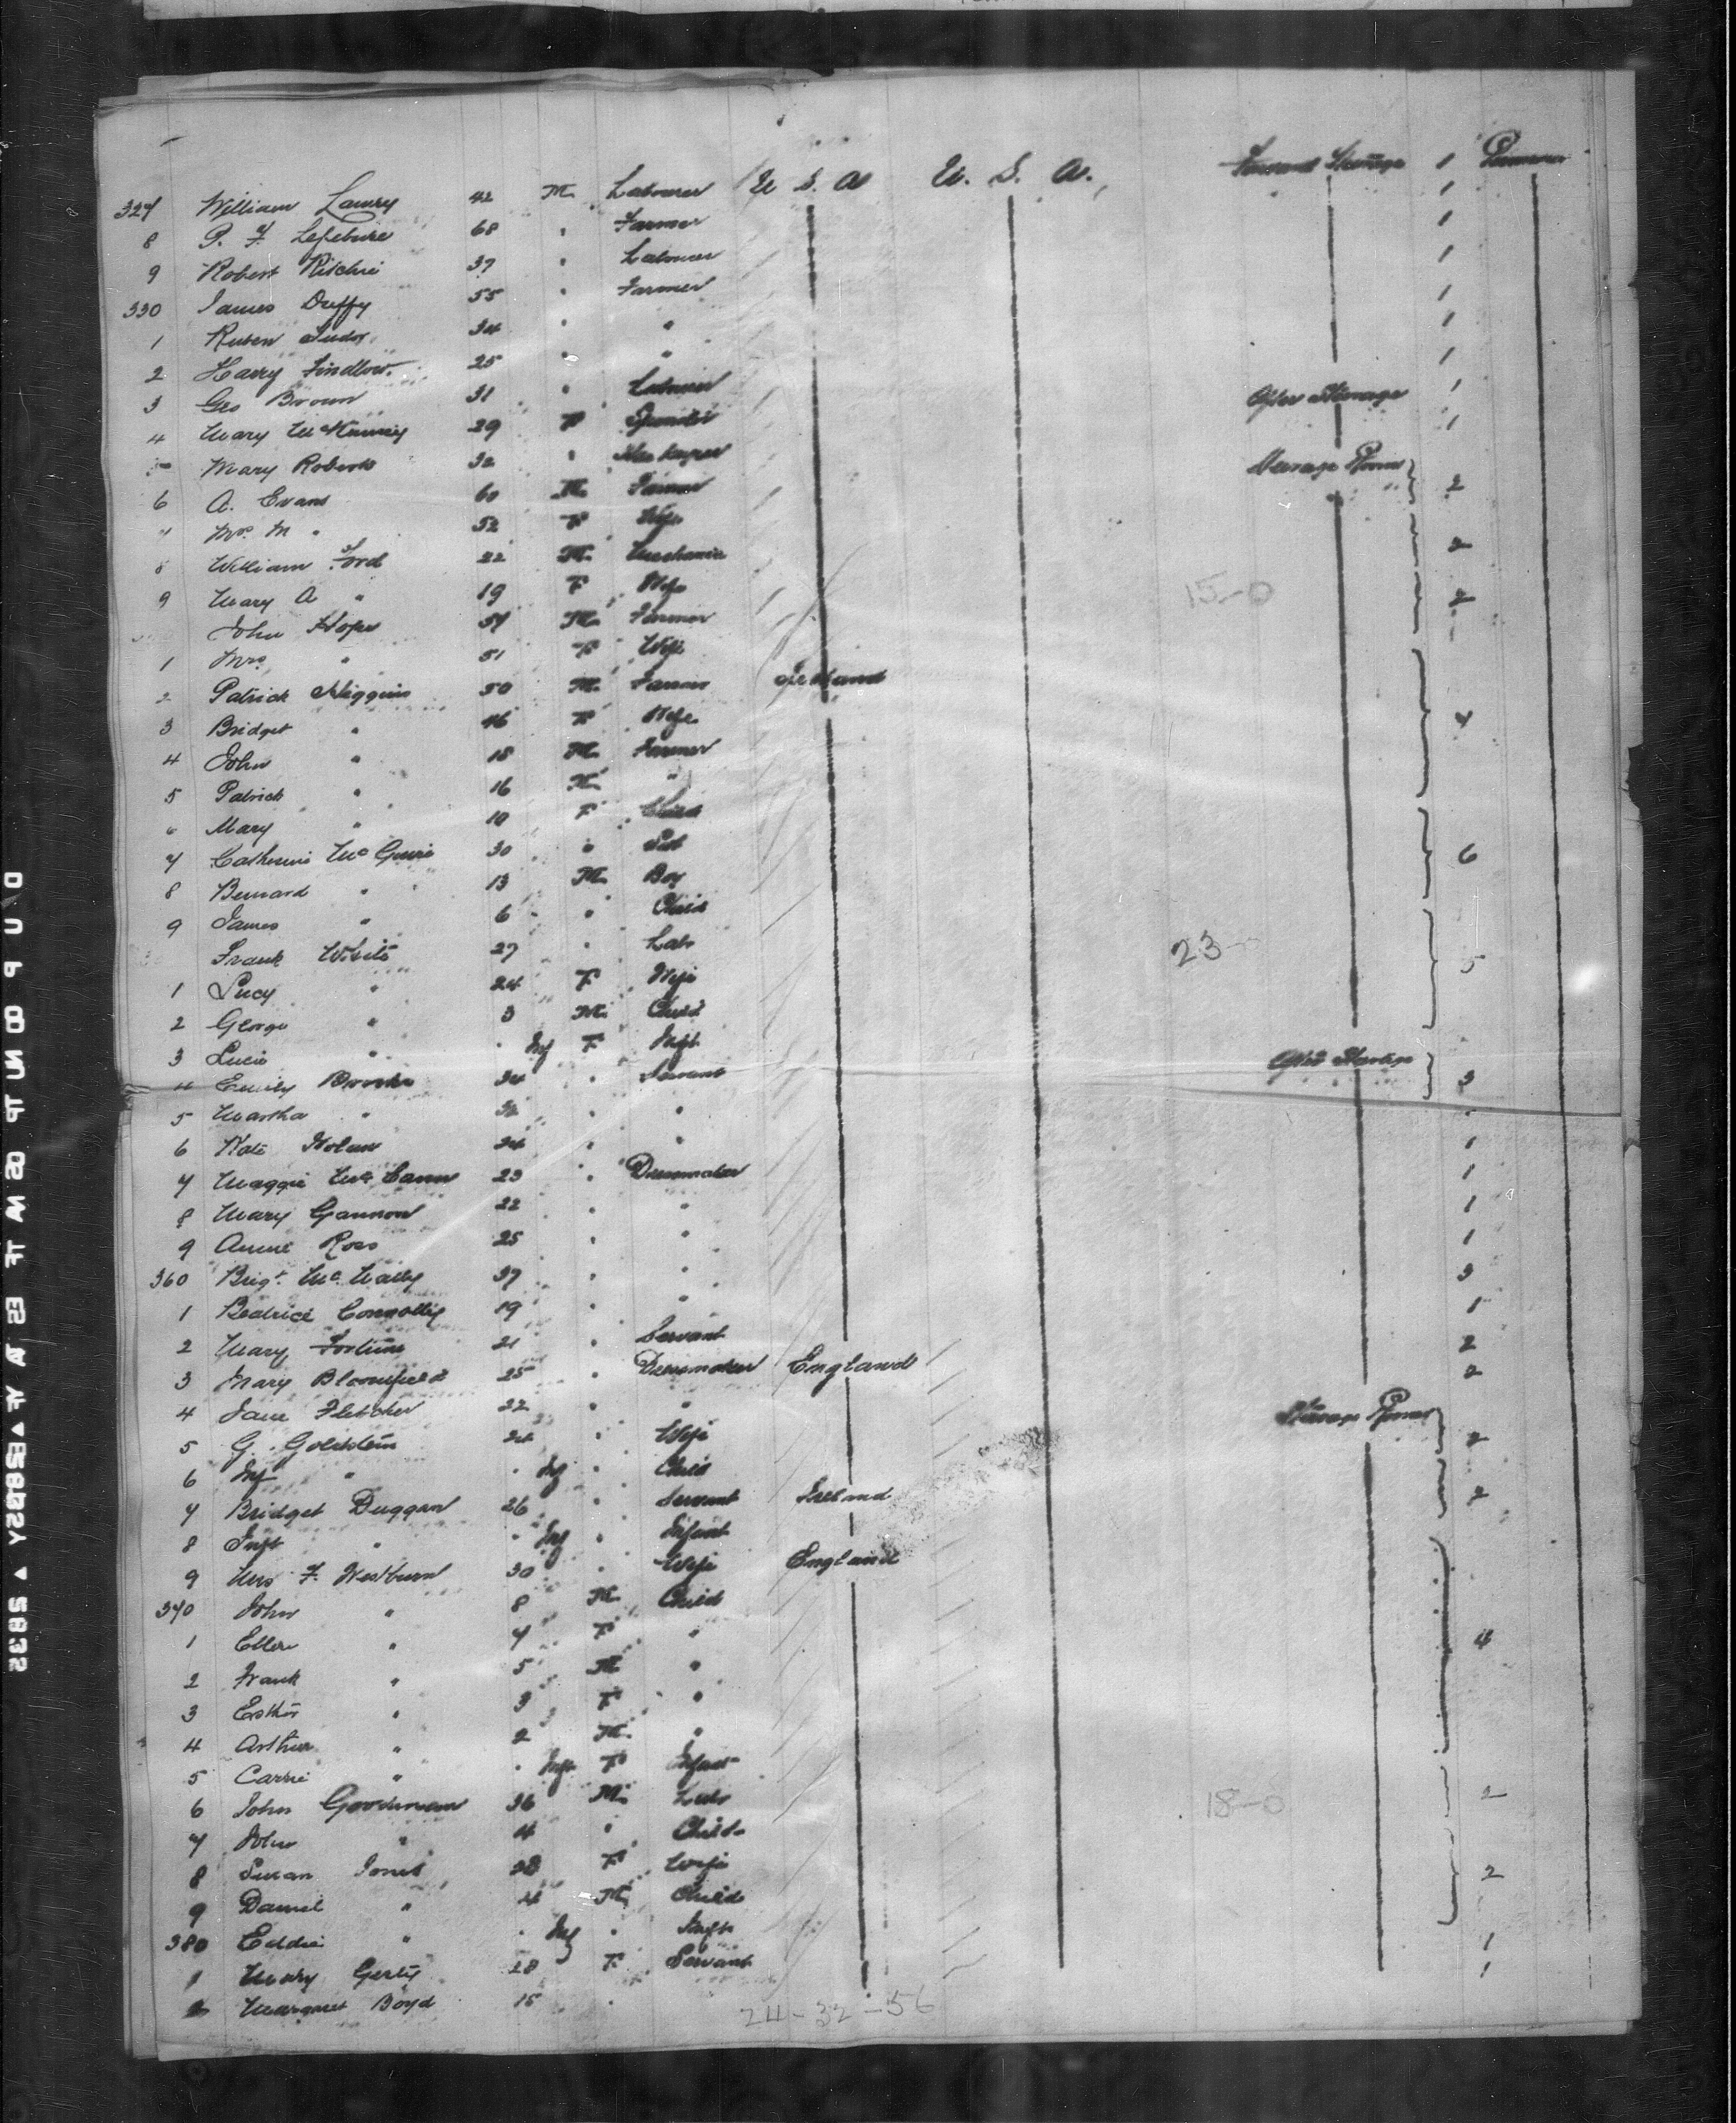 327 William Lawry 42 M. Labourer U S. A U. S. A. Forward Steerage 1
8 P. F. Lefebure 68 " Farmer 1
9 Robert Ritchie 37 " Labourer 1
330 James Duffy 55 " Farmer 1
1 Ruben Tudor 34 " " 1
2 Harry Findlow 25 " " 1
3 Geo Brown 31 " Labourer 1
4 Mary McKinney 29 F After Steerage 1
Mary Roberts 32 " 1
6 A. Evans 60 M. Farmer Steerage Rooms 2
7 Mrs M " 52 F Wife
8 William Ford 22 M. Mechanic 2
9 Mary A " 19 F Wife
John Hope 57 M. Farmer 15-0 2
1 Mrs " 51 F Wife
2 Patrick Higgins 50 M. Farmer Ireland
3 Bridget " 46 F Wife 4
4 John " 18 M Farmer
5 Patrick " 16 M. "
6 Mary " 10 F Child
7 Catherine McGuire 30 " 6
8 Bernard " 13 M. Boy
9 James " 6 " Child
Frank White 27 " Lab 23-0 5
1 Lucy " 24 F Wife
2 George " 3 M. Child
3 Lucie " Inf F Inft
4 Emily Brooks 34 " Servant After Steerage 3
5 Martha " 32 " "
6 Kate Nolan 24 " " 1
7 Maggie McCann 23 " Dressmaker 1
8 Mary Gannon 22 " " 1
9 Annie Ross 25 " " 1
360 Brigt. McNally 37 " " 3
1 Beatrice Connolly 19 " " 1
2 Mary Fortune 21 " Servant 2
3 Mary Bloomfield 25 " Dressmaker England 2
4 Jane Fletcher 22 " "
5 G. Goldstein 24 " Wife Steerage Rooms 2
6 Inf " Inf " Child
7 Bridget Duggan 26 " Servant Ireland 2
8 Inft " Inf " Infant
9 Mrs F. Westburn 30 " Wife England
370 John " 8 M. Child
1 Ellen " 7 F " 4
2 Frank " 5 M "
3 Esther " 3 F "
4 Arthur " 2 M. "
5 Carrie " Inf F Infant
6 John Goodman 36 M. Lab 18-0 2
7 John " 4 " Child
8 Susan Jones 28 F Wife 2
9 Daniel " 4 M. Child
380 Eddie " Inf " Inft
1 Mary Gerty 28 F. Servant 1
2 Margaret Boyd 15 " 1
24-32-56